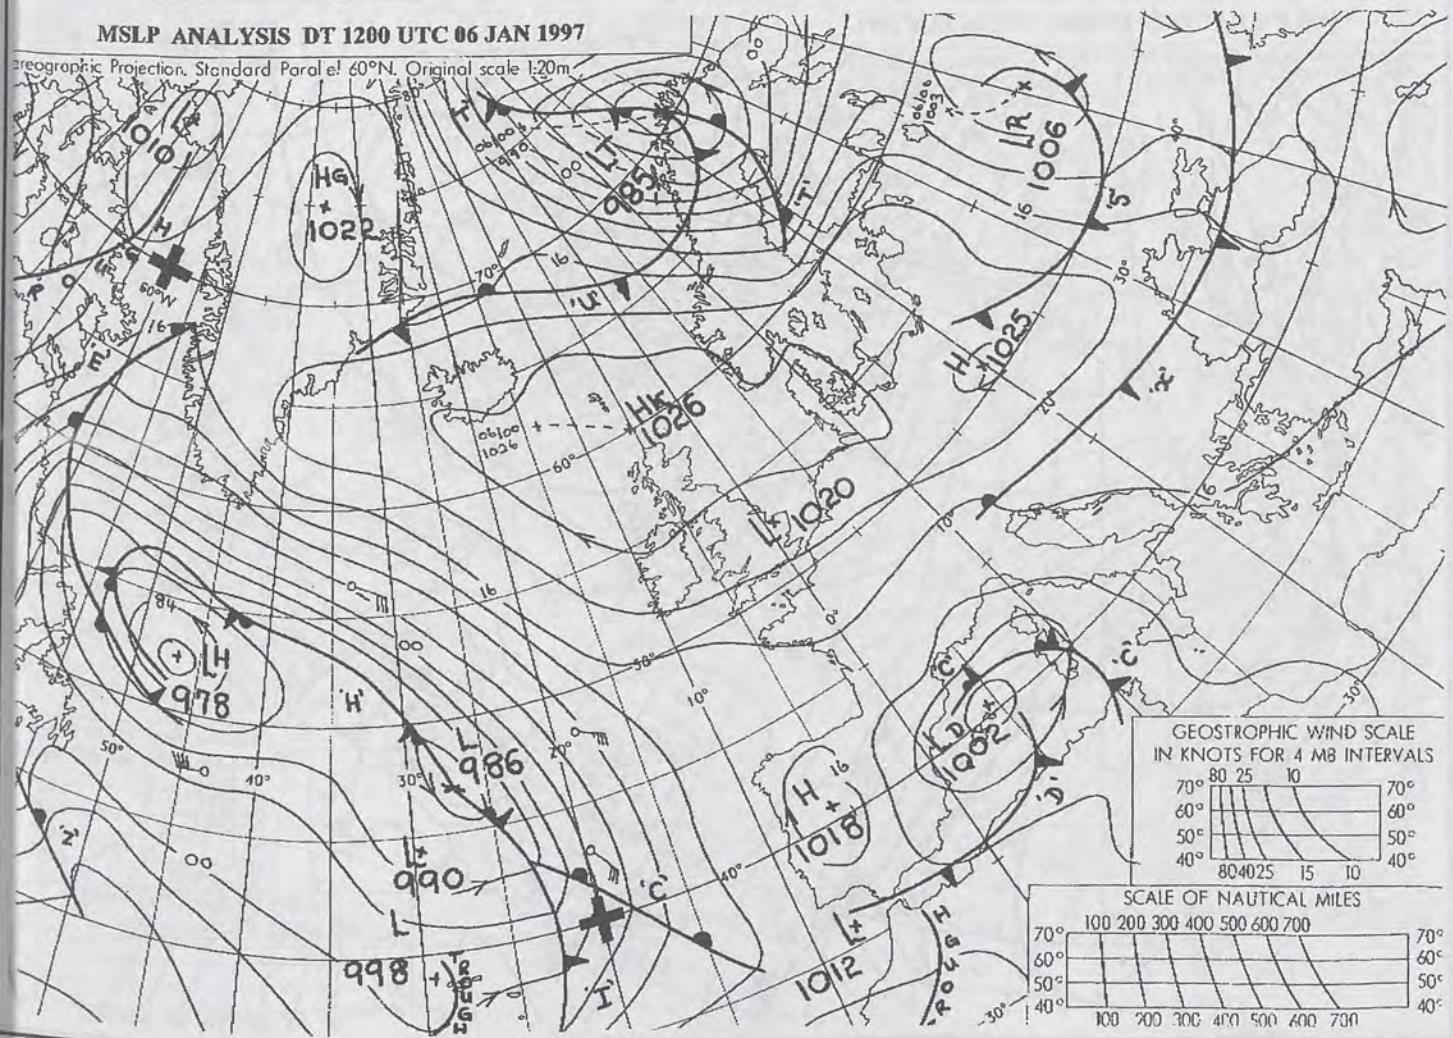 MSLP ANALYSIS DT 1200 UTC 06 JAN 1997
reographic Projection. Standard Parallel 60°N. Original scale 1:20m
80°
L
1010
HG
1022
'T'
06/00
990
00
LT
985
'T'
00
06/00
1003
LR
1006
16
'S'
40°
30°
H
60°W
16
'E'
70°
16
'U'
HK
1026
06/00
1026
60°
H
1025
20°
'X'
L
1020
10°
16
0°
84
LH
978
'H'
00
16
50°
10°
20°
L
986
30°
40°
50°
'Z'
00
L
990
L
998
TROUGH
'C'
'I'
40°
H
16
1018
LD
1002
'C'
'C'
'D'
L
1012
TROUGH
30°
30°
GEOSTROPHIC WIND SCALE
IN KNOTS FOR 4 MB INTERVALS
80 25 10
70° 70°
60° 60°
50° 50°
40° 40°
80 40 25 15 10
SCALE OF NAUTICAL MILES
100 200 300 400 500 600 700
70° 70°
60° 60°
50° 50°
40° 40°
100 200 300 400 500 600 700